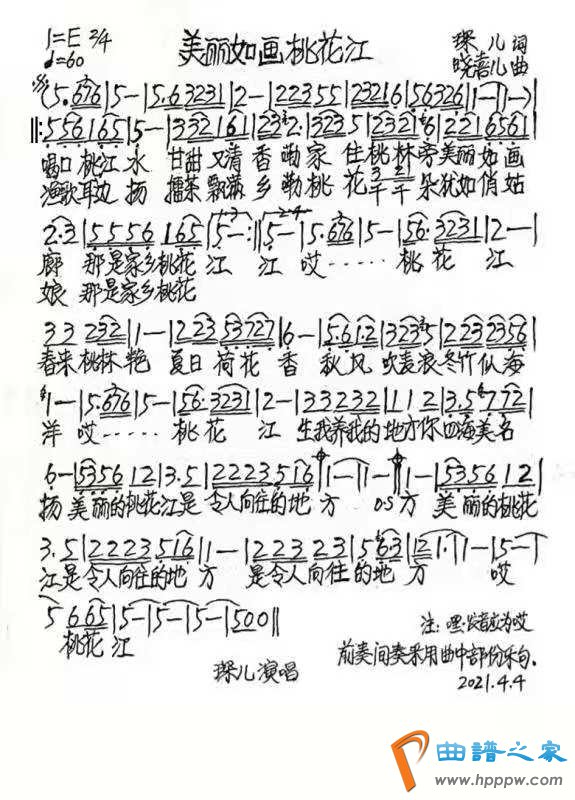 1=E 2/4
♩=60
美丽如画桃花江
琛儿词
晓喜儿曲
(5.676|5-|5.63231|2-|22355|23216|56326|1-|1-)
‖:556165|5-|332161|232.|3235|2321 6|2216561|
喝口桃江水 甘甜又清香 嘞家住桃林旁美丽如画
渔歌耳边扬 擂茶飘满乡 勒桃花千千朵犹如俏姑
2.3|5556 165|5-:‖5-|5.676|5-|56.3231|2-|
廊 那是家乡桃花江 江哎……桃花江
娘 那是家乡桃花
33232|1-|22353727|6-|5612|3235|2232356|
春来桃林艳 夏日荷花香 秋风吹麦浪冬竹似海
1-|5.676|5-|56.3231|2-|33232 32|112|3.5772|
洋哎……桃花江 生我养我的地方你四海美名
6-|5356 12|3.5|2223516|1-|1-|1-|5356 12|
扬美丽的桃花江是令人向往的地方 DS方 美丽的桃花
3.5|2223516|1-|22323|563|121.|1-|5-|
江是令人向往的地方 是令人向往的地方 哎
5665|5-|5-|5-|500‖
桃花江
琛儿演唱
注:嘿发音应为哎
前奏间奏采用曲中部份乐句.
2021.4.4
曲谱之家
www.hpppw.com